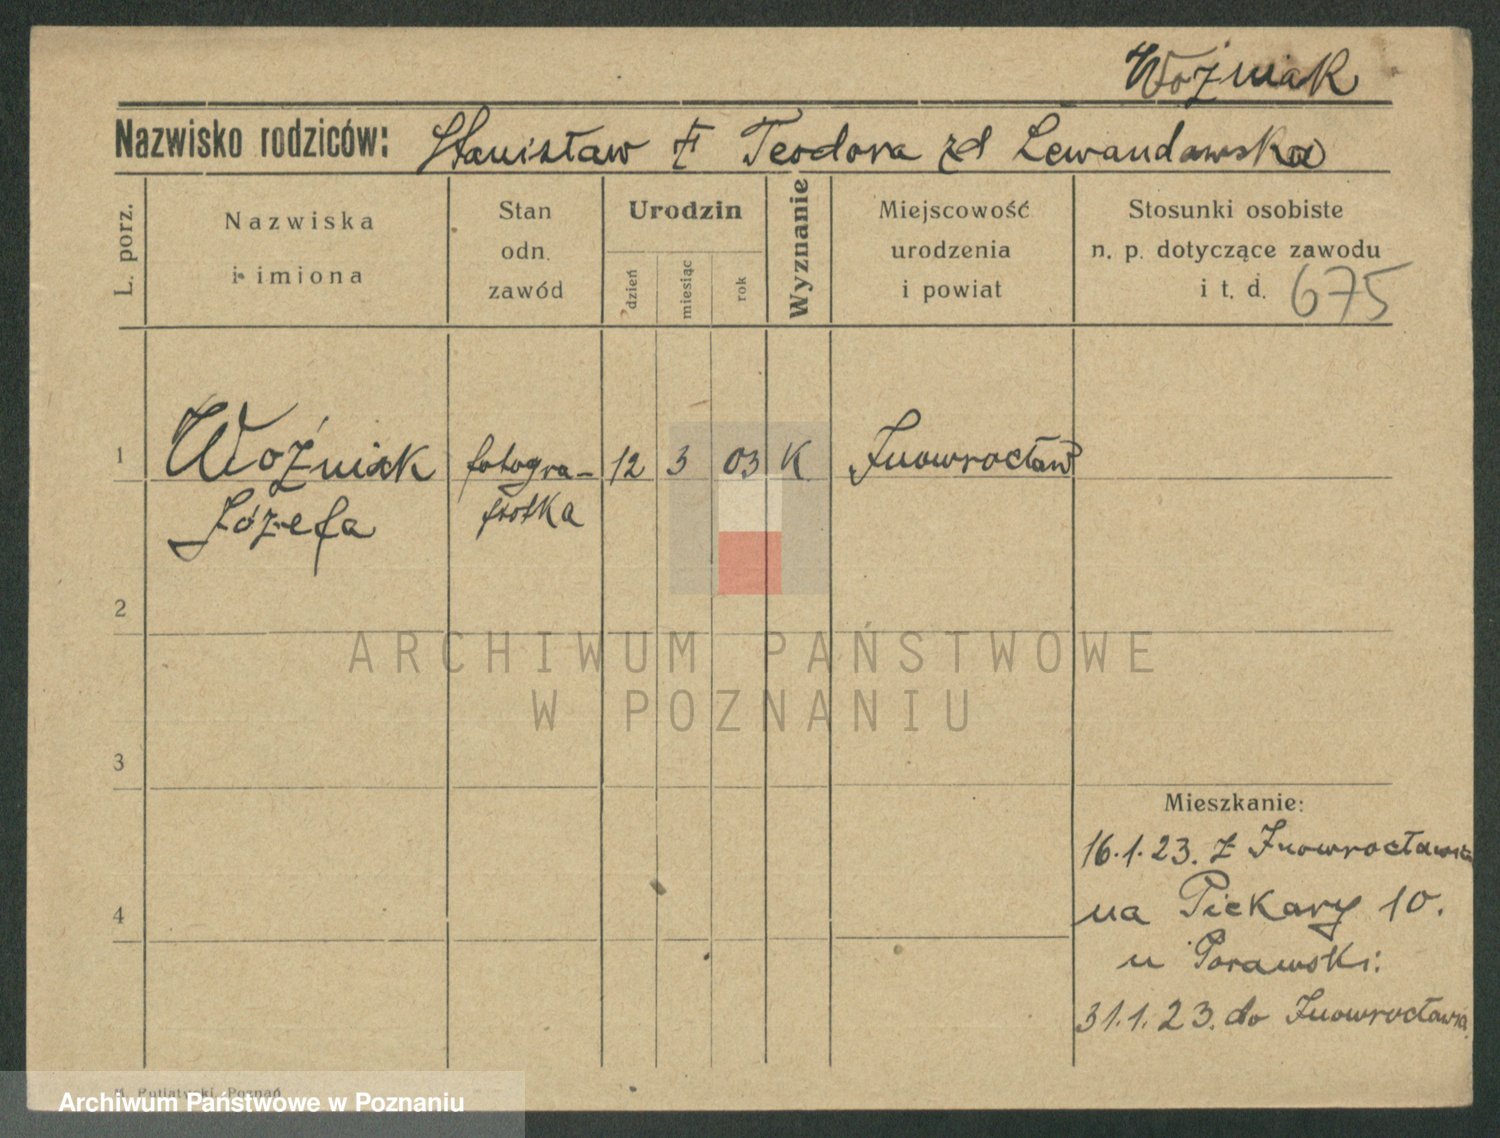 Woźniak
Nazwisko rodziców: Stanisław Teodora zd Lewandowska
L. porz.
Nazwiska
i imiona
Stan
odn.
zawód
Urodzin
dzień
miesiąc
rok
Wyznanie
Miejscowość
urodzenia
i powiat
Stosunki osobiste
n. p. dotyczące zawodu
i t. d. 675
1 Woźniak fotogra- 12 3 03 K Inowrocław
Józefa fistka
2
ARCHIWUM PAŃSTWOWE
W POZNANIU
3
Mieszkanie:
16.1.23. z Inowrocławia
4
na Piekary 10.
u Porawski:
31.1.23. do Inowrocławia
Poznań
Archiwum Państwowe w Poznaniu